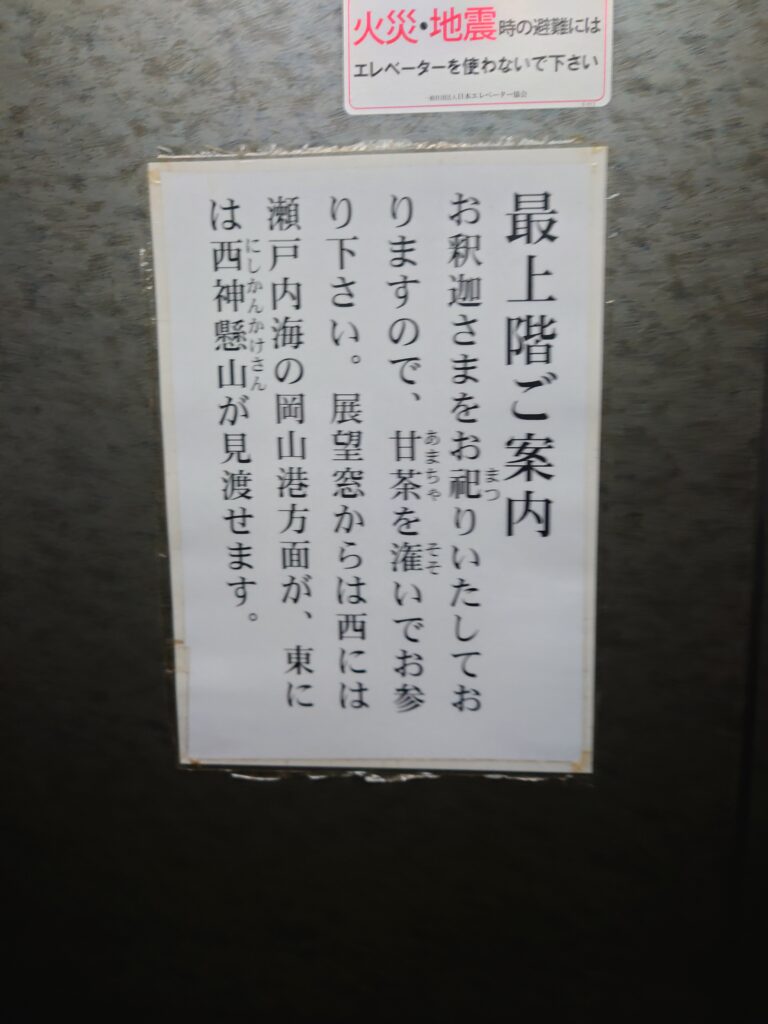 火災・地震時の避難には
エレベーターを使わないで下さい
一般社団法人日本エレベーター協会
最上階ご案内
お釈迦さまをお祀りいたしてお
りますので、甘茶を潅いでお参
り下さい。展望窓からは西には
瀬戸内海の岡山港方面が、東に
は西神懸山が見渡せます。
まつ
あまちゃ
そそ
にしかんかけさん